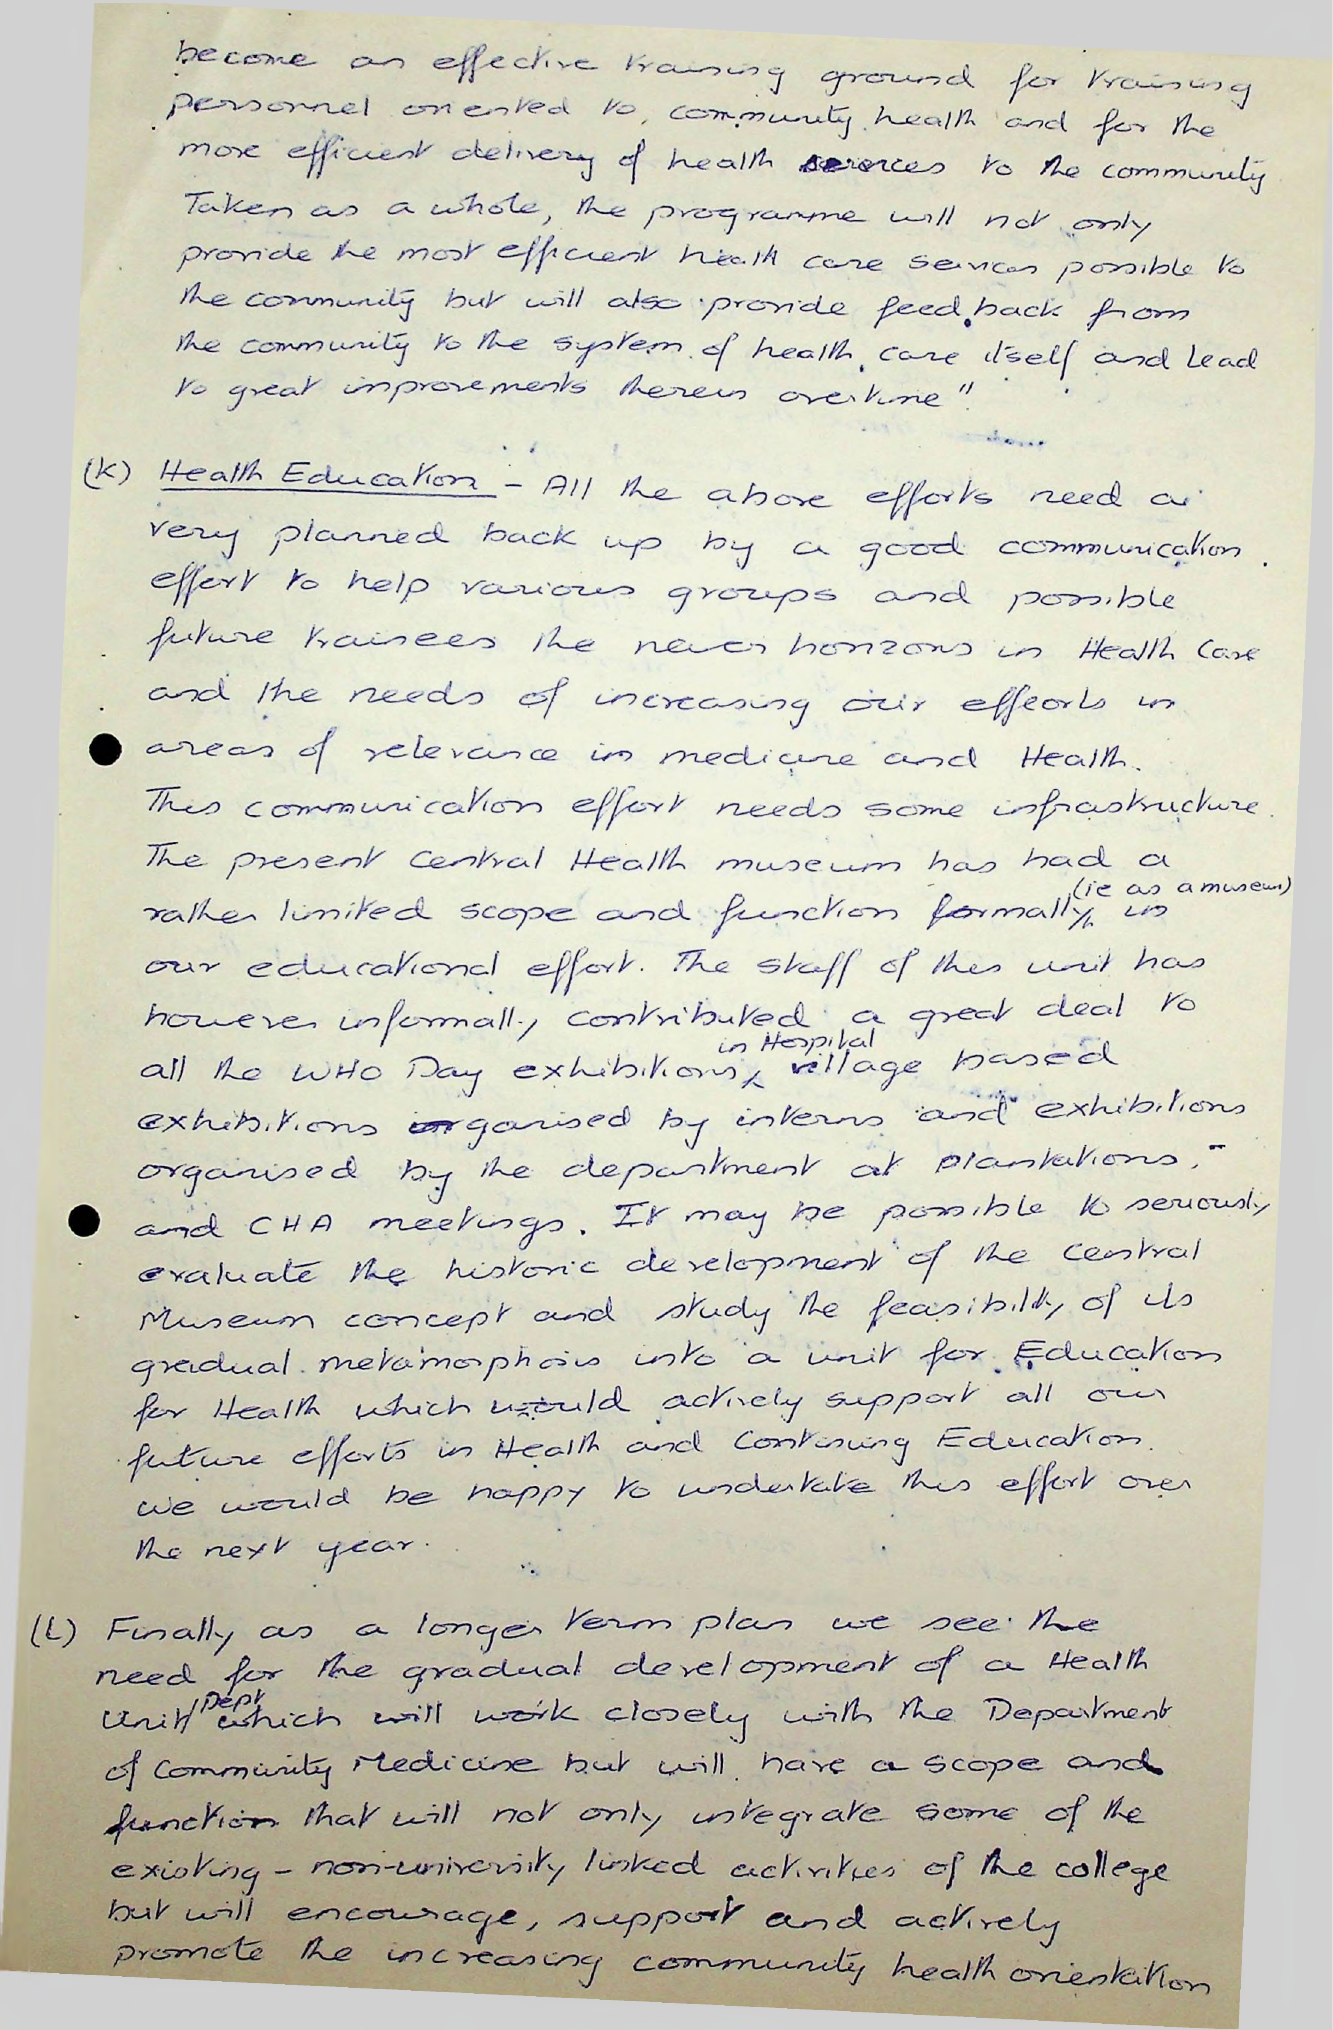 become an effective training ground for training
personnel oriented to community health and for the
more efficient delivery of health services to the community
Taken as a whole, the programme will not only
provide the most efficient health care services possible to
the community but will also provide feed back from
the community to the system of health care itself and lead
to great improvements therein overtime"
(K) Health Education - All the above efforts need a
very planned back up by a good communication
effort to help various groups and possible
future trainees the newer horizons in Health Care
and the needs of increasing our efforts in
areas of relevance in medicine and Health.
This communication effort needs some infrastructure.
The present Central Health museum has had a
rather limited scope and function formally (ie as a museum) in
our educational effort. The staff of this unit has
however informally contributed a great deal to
all the WHO Day exhibitions, in Hospital village based
exhibitions organised by interns and exhibitions
organised by the department at plantations,
and CHA meetings. It may be possible to seriously
evaluate the historic development of the Central
Museum concept and study the feasibility of its
gradual metamorphosis into a unit for Education
for Health which would actively support all our
future efforts in Health and Continuing Education.
We would be happy to undertake this effort over
the next year.
(L) Finally as a longer term plan we see the
need for the gradual development of a Health
Unit/Dept which will work closely with the Department
of Community Medicine but will have a scope and
function that will not only integrate some of the
existing - non-university linked activities of the college
but will encourage, support and actively
promote the increasing community health orientation